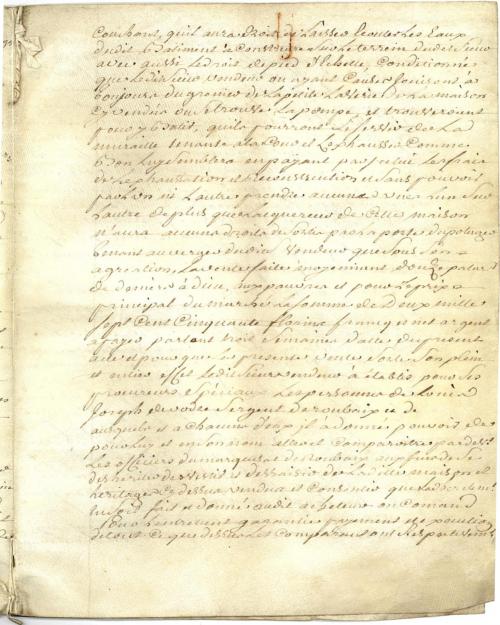 tombant, qu'il aura droit de Laisser Ecouler Les Eaux
dudit Batiment a Construire sur Le terrein dudit sieur
avec aussi Le droit de pied d'Echelle, Conditionné
que Ledit sieur vendeur ou ayant Cause jouiront à
toujours du grenier de La petite Laiterie de La maison
cy vendüe où se trouve La pompe, et trouveront
pour y batir, qu'ils pourront se servir de La
muraille tenante a La Cour et L'Exhausser Comme
bon Luy semblera en payant par Luy Les frais
de L'Exhaustation et reconstruction et sans pouvoir
par L'un ni L'autre prendre aucunes vües L'un sur
L'autre de plus que L'acquereur de cette maison
n'aura aucun droit de sortie par La porte du potager
tenant au verger dudit vendeur que sous son
agreation, La vente faite moyennant douze patars
de denier à Dieu, aux pauvres et pour Le prix
principal du marché La somme de Deux mille
sept Cent Cinquante florins francq et net argent
a payer partant trois semaines datte du present
acte et pour que La presente vente sorte son plein
et entier effet Ledit sieur vendeur à établis pour ses
procureurs spéciaux Les personnes de
Joseph sergent de roubaix et de
auxquels et a Chacun d'eux il à donné pouvoir de
pour Luy et en son nom aller et Comparoitre pardevant
Les officiers du marquisat de Roubaix aux fins de se
desheriter devestir et dessaisir de Ladite maison et
heritage cy dessus vendue et Consentir que adheritement
en soit fait et donné audit acheteur ou Comand
Pour L'entretient garantie payement et execution
de tout Ce que dessus Les Comparans ont Respectivement